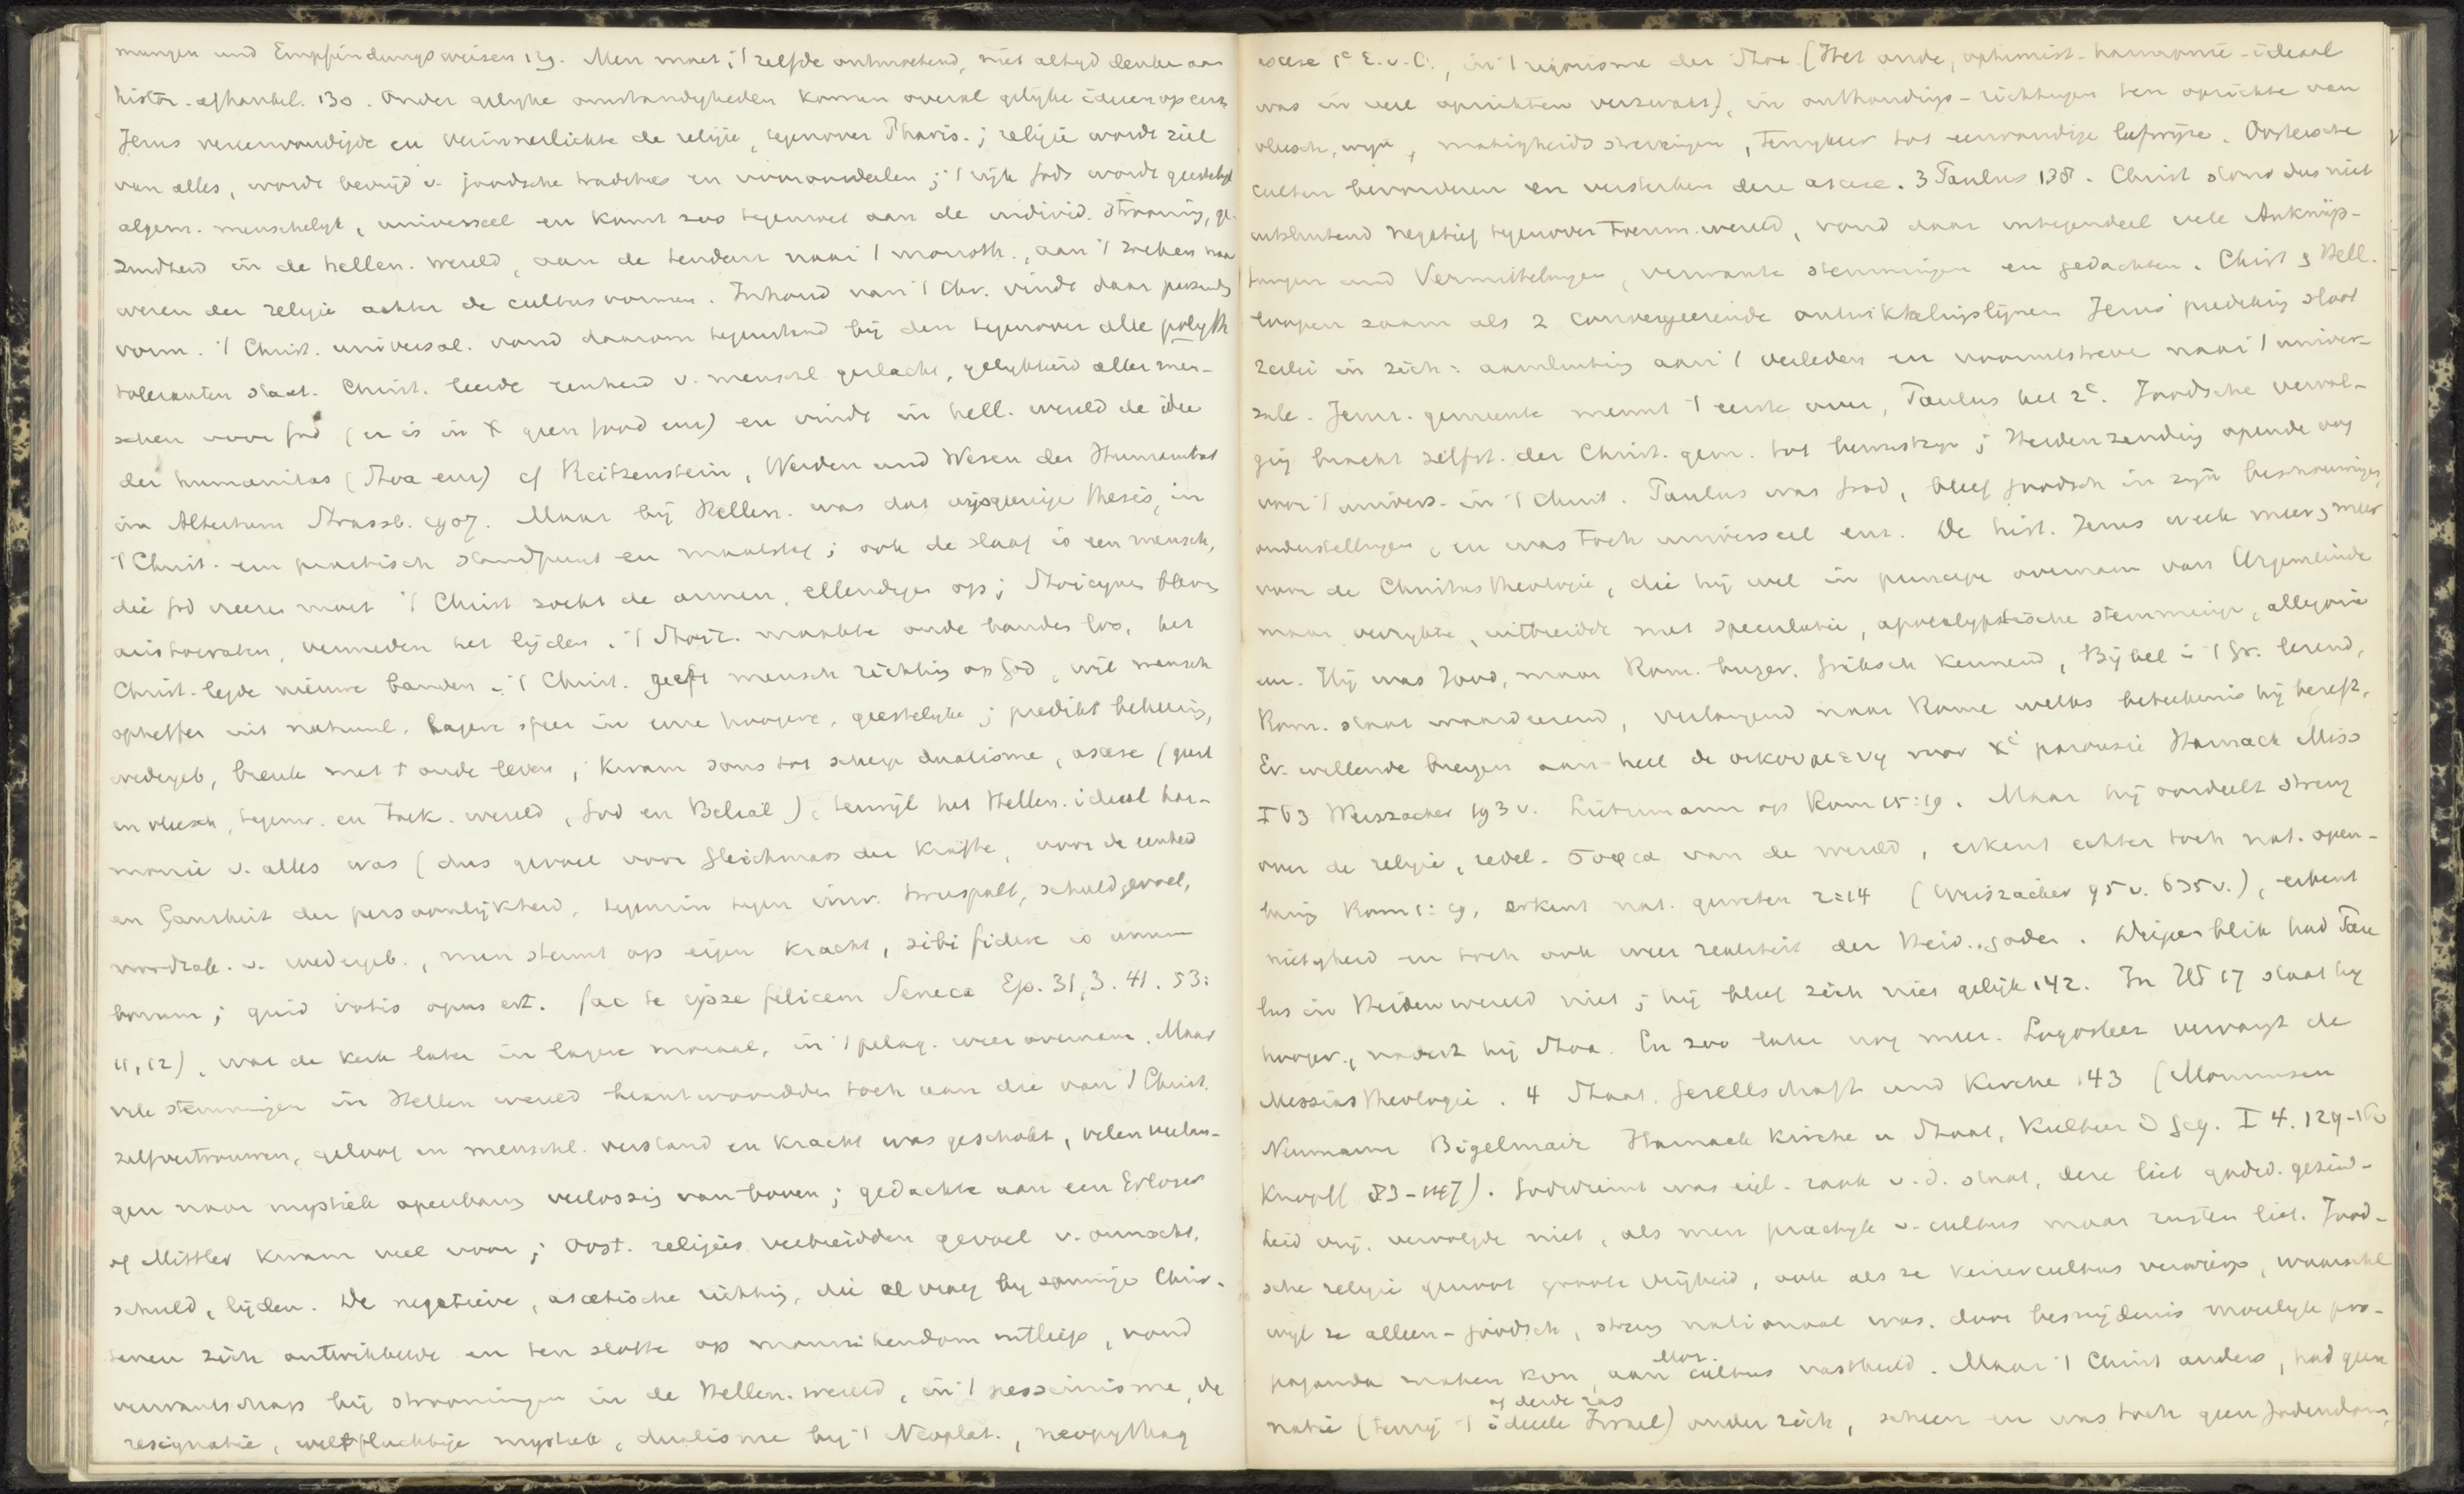 mungen und Empfindungsweisen 129. Men moet, 't zelfde ontmoetend, niet altyd denken aan
histor. afhankel. 130. Onder gelyke omstandigheden komen overal gelyke ideeen op enz.
Jezus vereenvoudigde en verinnerlichte de religie, tegenover Pharis.; religie wordt ziel
van alles, wordt bevrijd v. joodsche tradities en vooroordeelen; 't rijk Gods wordt geestelijk
algem. menschelyk, universeel en komt zoo tegemoet aan de individ. strooming, ge-
zindheid in de hellen. wereld, aan de tendenz naar 't monoth., aan 't zoeken naar
wezen der religie achter de cultusvormen. Inhoud van 't Chr. vindt daar passende
vorm. 't Christ. universal. vond daarom tegenstand bij den tegenover alle polyth
toleranten staat. Christ. leerde eenheid v. menschel. geslacht, gelykheid aller men-
schen voor God (er is in X geen Jood enz) en vindt in hell. wereld de idee
der humanitas (Stoa enz) cf Reitzenstein, Werden und Wesen der Humanität
im Altertum Strassb. 1907. Maar bij Hellen. was dat wijsgeerige thesis, in
't Christ. een practisch standpunt en maatstaf; ook de slaaf is een mensch,
die God vreezen moet 't Christ zocht de armen, ellendigen op; Stoicynen bleven
aristocraten, vermeden het lyden. 't Stoic. maakte oude banden los, het
Christ. legde nieuwe banden. 't Christ. geeft mensch richting op God, wil mensch
opheffen uit natuurl. lagere sfeer in eene hoogere, geestelyke; predikt bekeering,
wedergeb, breuk met 't oude leven, kwam soms tot scherp dualisme, ascese (geest
en vleesch, tegenw. en toek. wereld, God en Belial), terwijl het Hellen. ideaal har-
monie v. alles was (dus gevoel voor Gleichmass der Kräfte, voor de eenheid
en Ganzheit der persoonlijkheid, tegenzin tegen inw. tweespalt, schuldgevoel,
noodzak. v. wedergeb., men steunt op eigen kracht, sibi fidere is unum
bonum; quid votis opus est. fac te ipse felicem Seneca Ep. 31,3. 41. 53:
11,12), wat de kerk later in lagere moraal, in 't pelag. weer overnam. Maar
vele stemmingen in Hellen wereld beantwoordden toch aan die van 't Christ.
zelfvertrouwen, geloof in menschl. verstand en kracht was geschokt, velen verlan-
gen naar mystiek openbaring verlossing van boven; gedachte aan een Erlöser
of Mittler kwam veel voor; Oost. religies verbreidden gevoel v. onmacht,
schuld, lijden. De negatieve, ascetische richting, die al vroeg by sommige Chris-
tenen zich ontwikkelde en ten slotte op monnikendom uitliep, vond
verwantschap bij stroomingen in de Hellen. wereld, in 't pessimisme, de
resignatie, weltfluchtige mystiek, dualisme by 't Neoplat., neopythag
ascese 1e E. v. C., in 't rigorisme der Stoa (Het oude, optimist-harmonie-ideaal
was in vele opzichten verzwakt), in onthoudings-richtingen ten opzichte van
vleesch, wijn, matigheids strevingen, terugkeer tot eenvoudige leefwijze. Oostersche
culten bevorderen en versterken deze ascese. 3 Paulus 138. Christ stond dus niet
uitsluitend negatief tegenover toenm. wereld, vond daar integendeel vele Anknüp-
fungen und Vermittelungen, verwante stemmingen en gedachten. Christ & Hell.
loopen zaam als 2 convergeerende ontwikkelingslijnen Jezus' prediking sloot
beide in zich: aansluiting aan 't verleden en vooruitstreven naar 't univer-
sale. Jeruz. gemeente neemt 't eerste over, Paulus het 2e. Joodsche vervol-
ging bracht zelfst. der Christ. gem. tot bewustzyn; Heidenzending opende oog
voor 't univers. in 't Christ. Paulus was Jood, bleef joodsch in zijn beschouwingen,
onderstellingen, en was toch universeel enz. De hist. Jezus week meer & meer
voor de Christus theologie, die hij wel in principe overnam van Urgemeinde
maar verrykte, uitbreidde met speculatie, apocalyptische stemmingen, allegorie
enz. Hij was Jood, maar Rom. burger. Grieksch kennend, Bijbel in 't Gr. lezend,
Rom. staat waardeerend, verlangend naar Rome welks beteekenis hij besefte,
Ev. willende brengen aan heel de οικουμενη voor Xi parousie Harnack Miss
I 63 Weiszacker 193 v. Lietzmann op Rom 15:19. Maar hij oordeelt streng
over de religie, zedel. σοφια van de wereld, erkent echter toch nat. open-
baring Rom 1:19, erkent nat. geweten 2:14 (Weiszäcker 95 v. 635 v.), erkent
nietigheid en toch ook weer realiteit der Heid. goden. Dieper blik had Pau
lus in Heidenwereld niet; hij bleef zich niet gelijk 142. In Hd 17 staat hij
hooger, nadert hij Stoa. En zoo later nog meer. Logosleer vervangt de
Messias theologie. 4 Staat. Gesellschaft und Kirche 143 (Mommsen
Neumann Bigelmair Harnack Kirche u Staat, Kultur d Geg. I 4. 129-160
Knopff 83-147). Godsdienst was eigl. zaak v. d. staat, deze liet godsd. gezind-
heid vrij, vervolgde niet, als men practyk v. cultus maar rusten liet. Jood-
sche religie genoot groote vrijheid, ook als ze keizercultus verwierp, waarschl
wijl ze alleen-joodsch, streng nationaal was, door besnijdenis moeilyk pro-
paganda maken kon, aan Moz. cultus vasthield. Maar 't Christ anders, had geen
natie (tenzij 't ideeele Israel of derde ras) onder zich, scheen en was toch geen Jodendom,